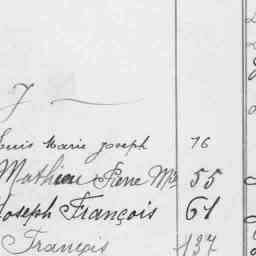 Louis Marie Joseph 76
Mathieu Pierre Mie 55
Joseph François 61
François 137